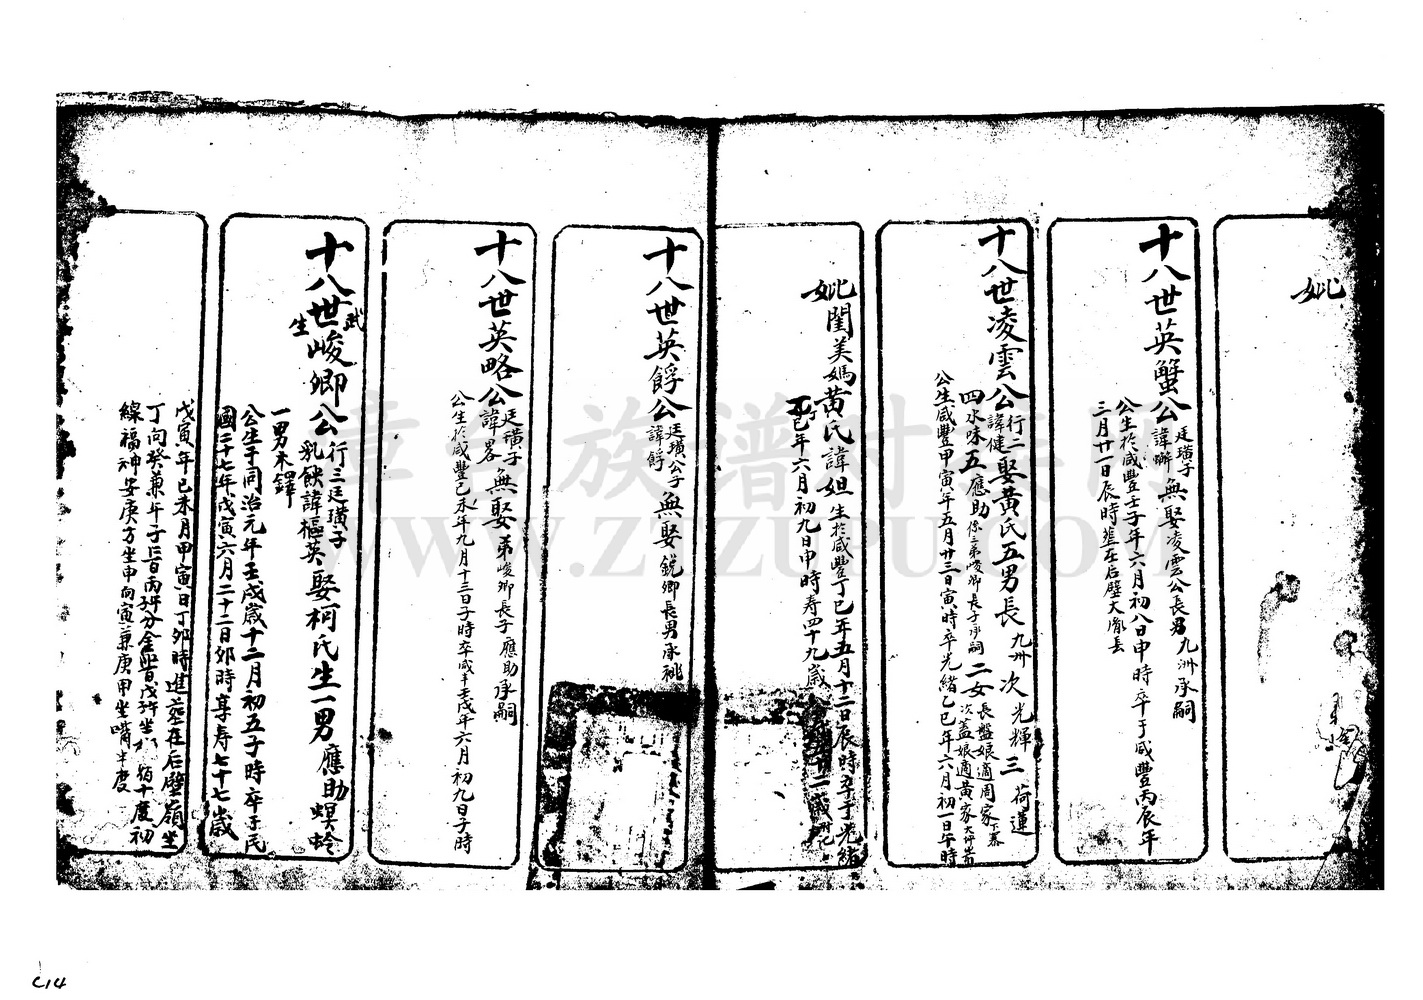 妣
十八世英蟹公
廷璜子
諱
無娶凌雲公長男九洲承嗣
公生於咸豐壬子年六月初八日申時卒于咸豐丙辰年
三月廿一日辰時塟在后壁大
十八世凌雲公
行二
諱健
娶黃氏五男長九洲次光輝三荷蓮
四水味五應助
二女
長盤娘適周家
次蓋娘適黃家
公生咸豐甲寅年五月廿三日寅時卒光緒乙巳年六月初一日午時
妣閨美媽黃氏諱妲生於咸豐丁巳年五月十二日辰時卒于光緒
乙巳年六月初九日申時寿四十九歲
十八世英餑公
廷璜公子
諱餑
無娶
銳卿長男承祧
十八世英略公
廷璜子
諱畧
無娶
弟峻卿長子應助承嗣
公生於咸豐己未年九月十三日子時卒咸丰壬戌年六月初九日子時
十八世峻卿公
武
生
行三廷璜子
乳鉄諱樞英
娶柯氏生一男應助螟蛉
一男木鐸
公生于同治元年壬戌歲十二月初五子時卒于民
國二十七年戊寅六月二十二日卯時享寿七十七歲
戊寅年己未月甲寅日丁卯時進塟在后壁嶺坐
丁向癸兼午子
線福神安庚方坐申向寅兼庚甲坐觜半度
C14